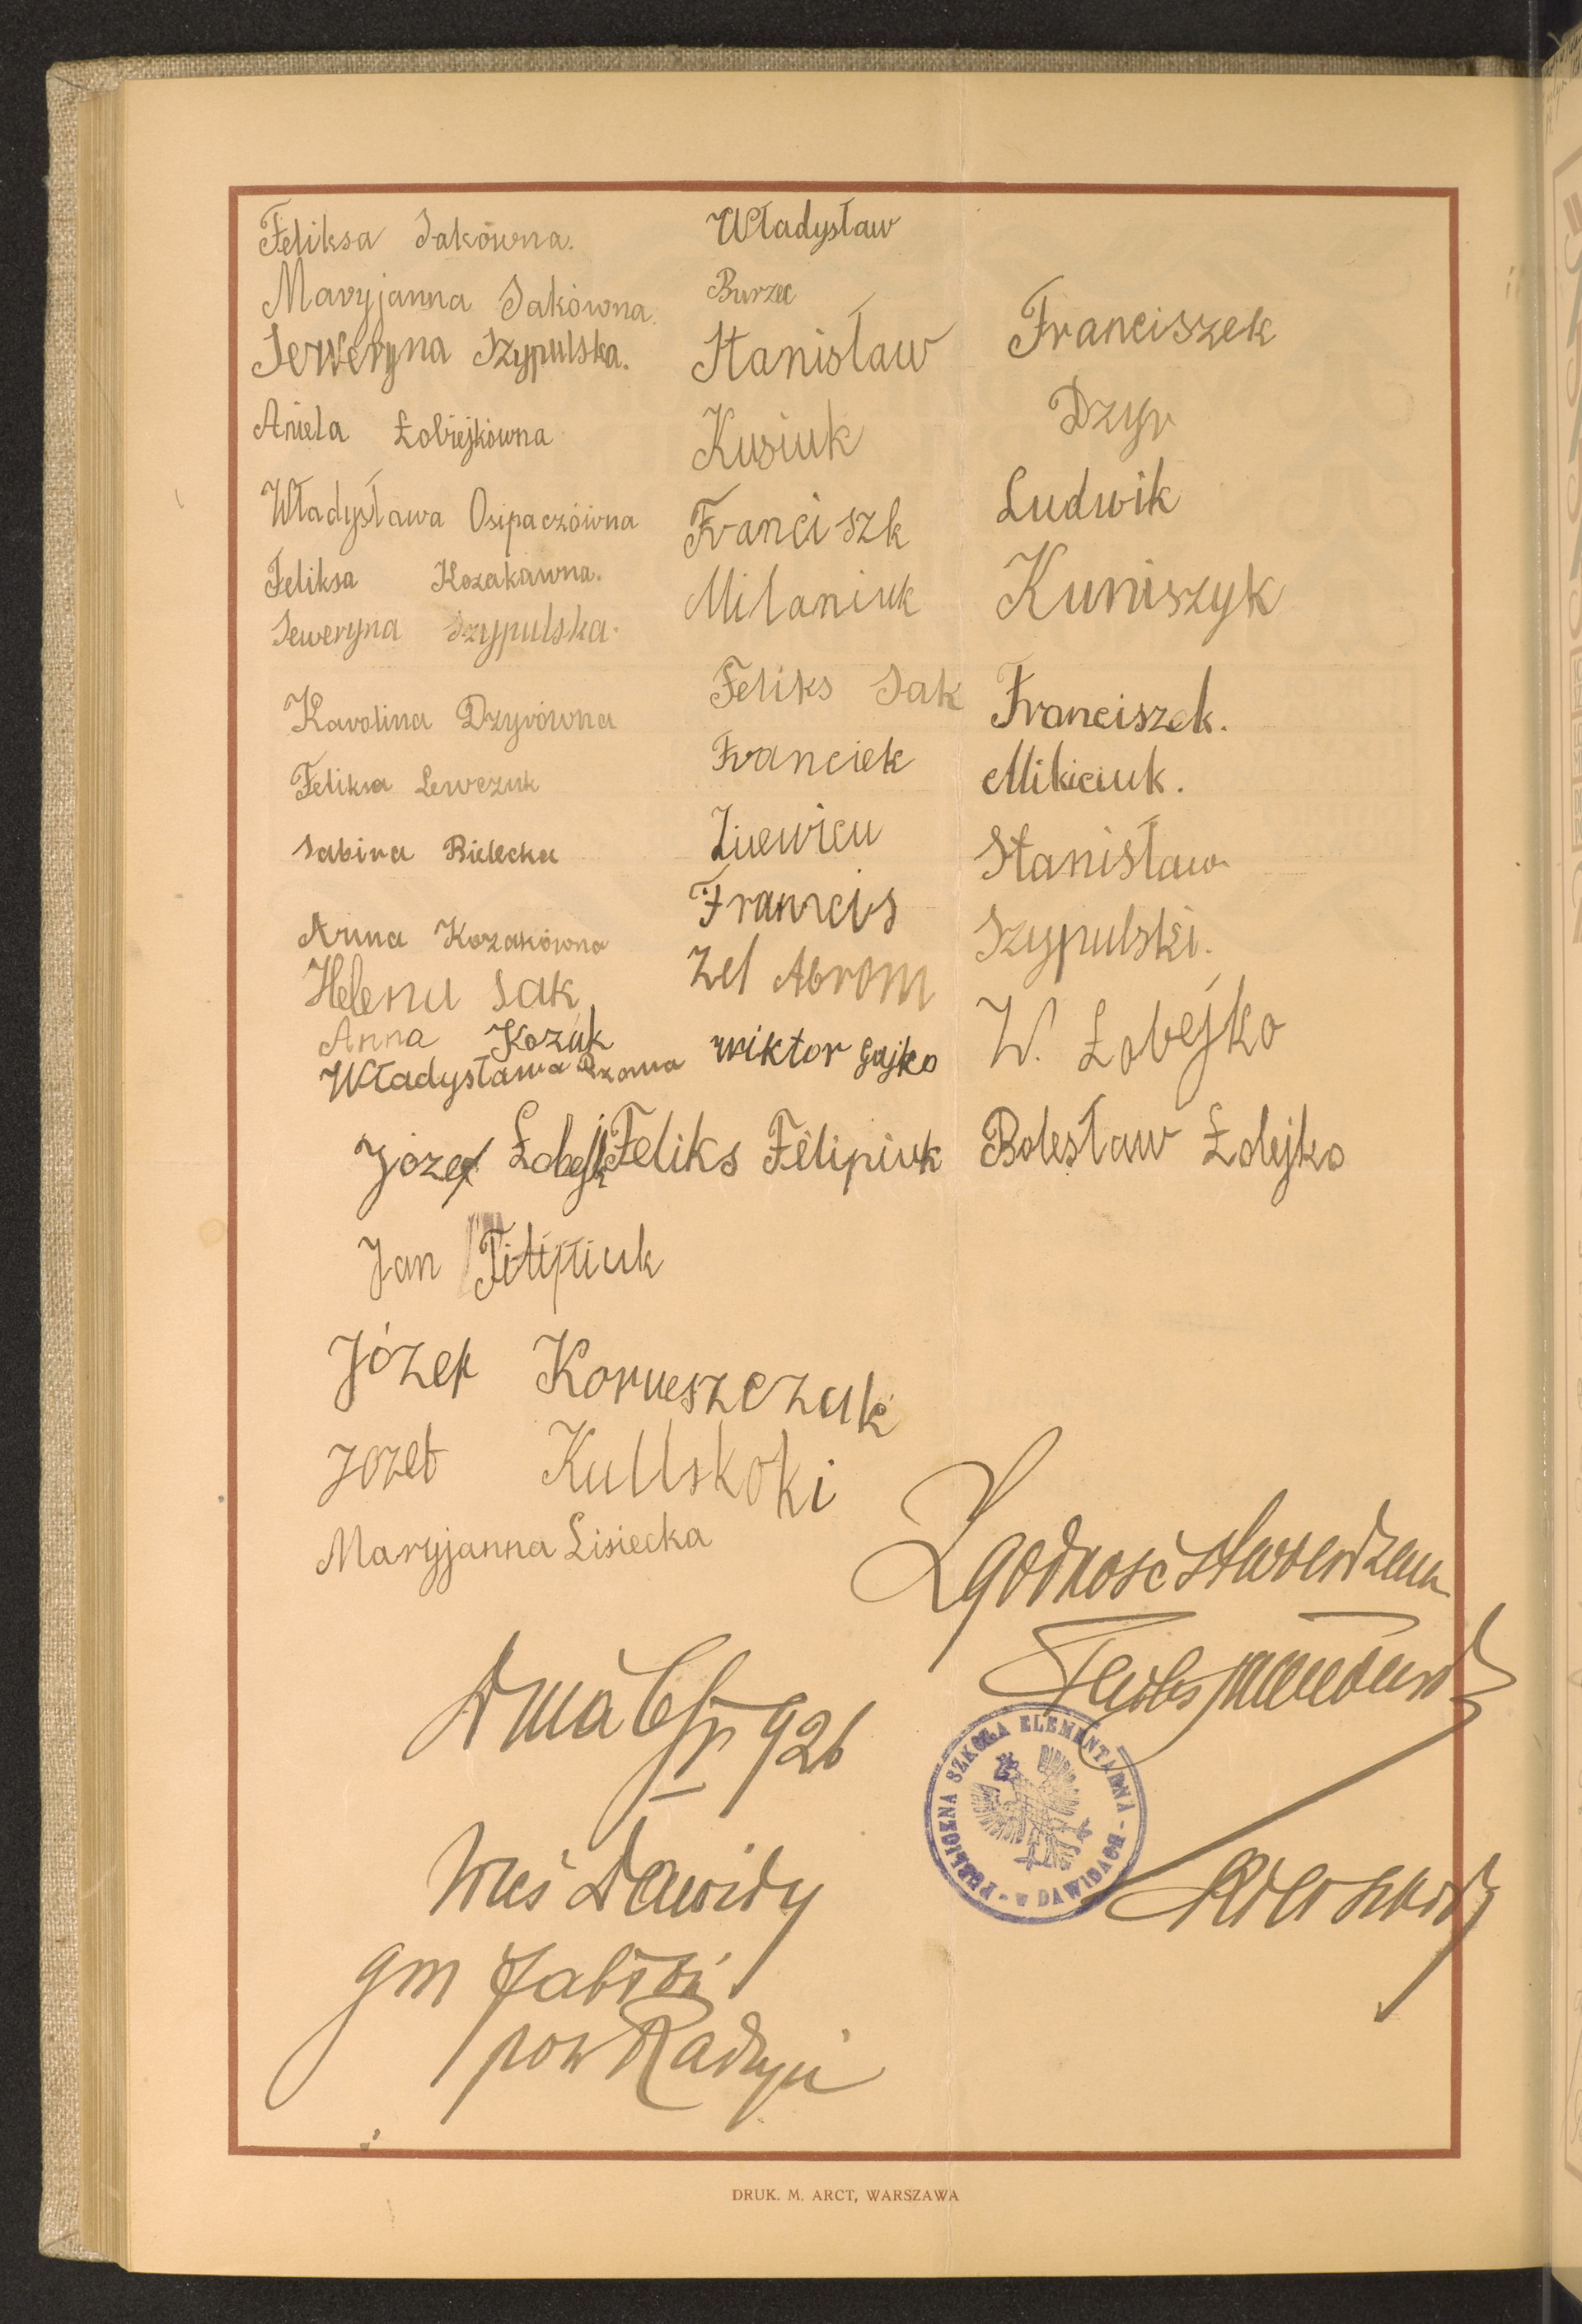 Feliksa Sakówna.
Maryjanna Sakówna.
Seweryna Szypulska.
Aniela Łobiejkówna
Władysława Osipaczówna
Feliksa Kozakówna.
Seweryna Szypulska.
Karolina Dzyrówna
Feliksa Lewczuk
Sabina Bielecka
Anna Kozakówna
Helena Sak
Anna Kozak
Władysława
Józef Łobejk
Jan Filipiuk
Józef Korneszczuk
Józef
Maryjanna Lisiecka
Władysław
Burzec
Stanisław
Kusiuk
Franciszk
Milaniuk
Feliks Sak
Franciek
Francis
Zel Abrom
wiktor Gajko
Feliks Filipiuk
Franciszek
Dzyr
Ludwik
Kuniszyk
Franciszek.
Mikiciuk.
Stanisław
Szypulski.
W. Łobejko
Bolesław Łobejko
Zgodność stwierdzam
Dnia 6/V 926
Wieś Dawidy
gm Jabłoń
pow Radzyń
PUBLICZNA SZKOŁA ELEMENTARNA
w DAWIDACH
DRUK. M. ARCT, WARSZAWA